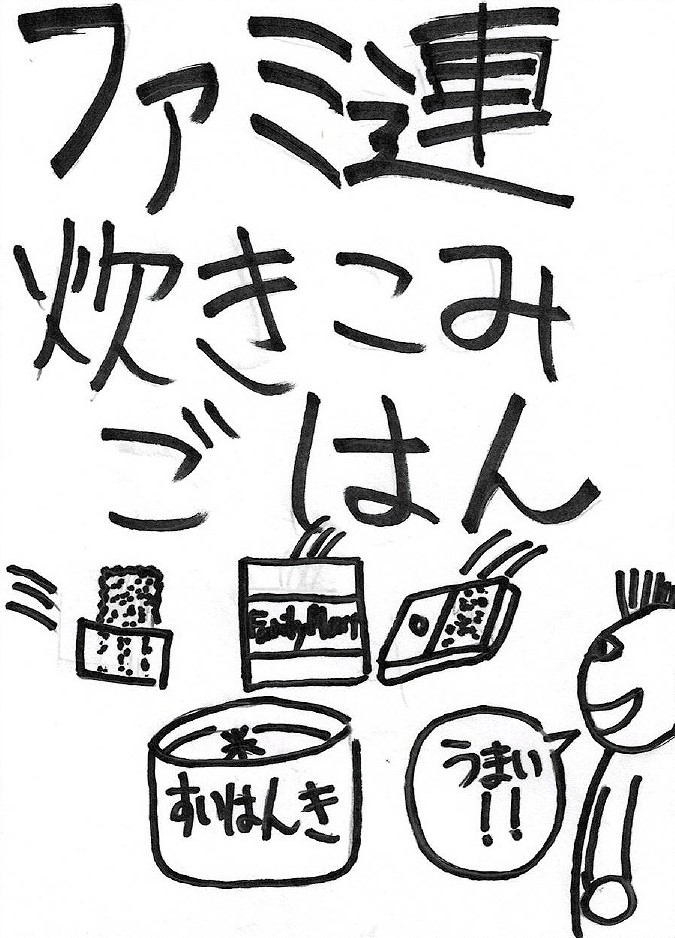 ファミ連
炊きこみ
ごはん
FamilyMart
米
すいはんき
うまい
!!